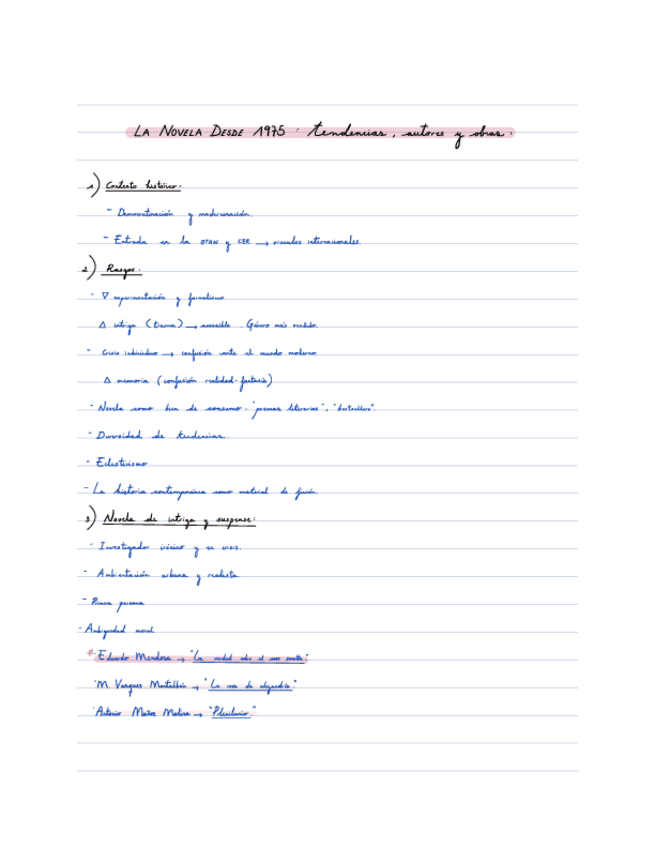 LA NOVELA DESDE 1975: tendencias, autores y obras:
1) Contexto histórico:
- Democratización y modernización.
- Entrada en la OTAN y CEE → vínculos internacionales.
2) Rasgos:
- ∇ experimentación y formalismo
Δ intriga (trama) → accesible. Género más vendido.
- Crisis individuo → confusión ante el mundo moderno
Δ memoria (confusión realidad-fantasía)
- Novela como bien de consumo: "premios literarios", "bestsellers".
- Diversidad de tendencias.
- Eclecticismo
- La historia contemporánea como material de ficción
3) Novela de intriga y suspense:
- Investigador irónico y en crisis.
- Ambientación urbana y realista.
- Primera persona
- Ambigüedad moral
* Eduardo Mendoza → "La verdad sobre el caso
M. Vázquez Montalbán → "La rosa de alejandría."
Antonio Muñoz Molina → "Plenilunio."